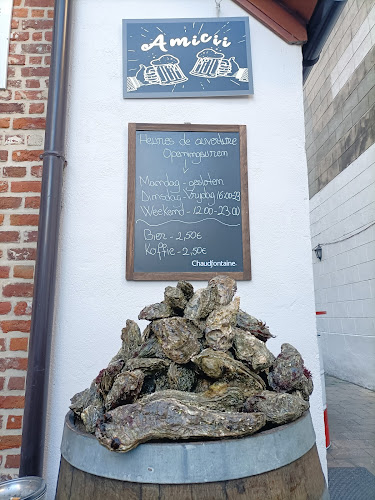 Amicii
Heures de ouverture
Openingsuren
Maandag - gesloten
Dinsdag-Vrijdag 16:00-23
Weekend - 12:00-23:00
Bier - 2,50€
Koffie - 2,50€
Chaudfontaine.